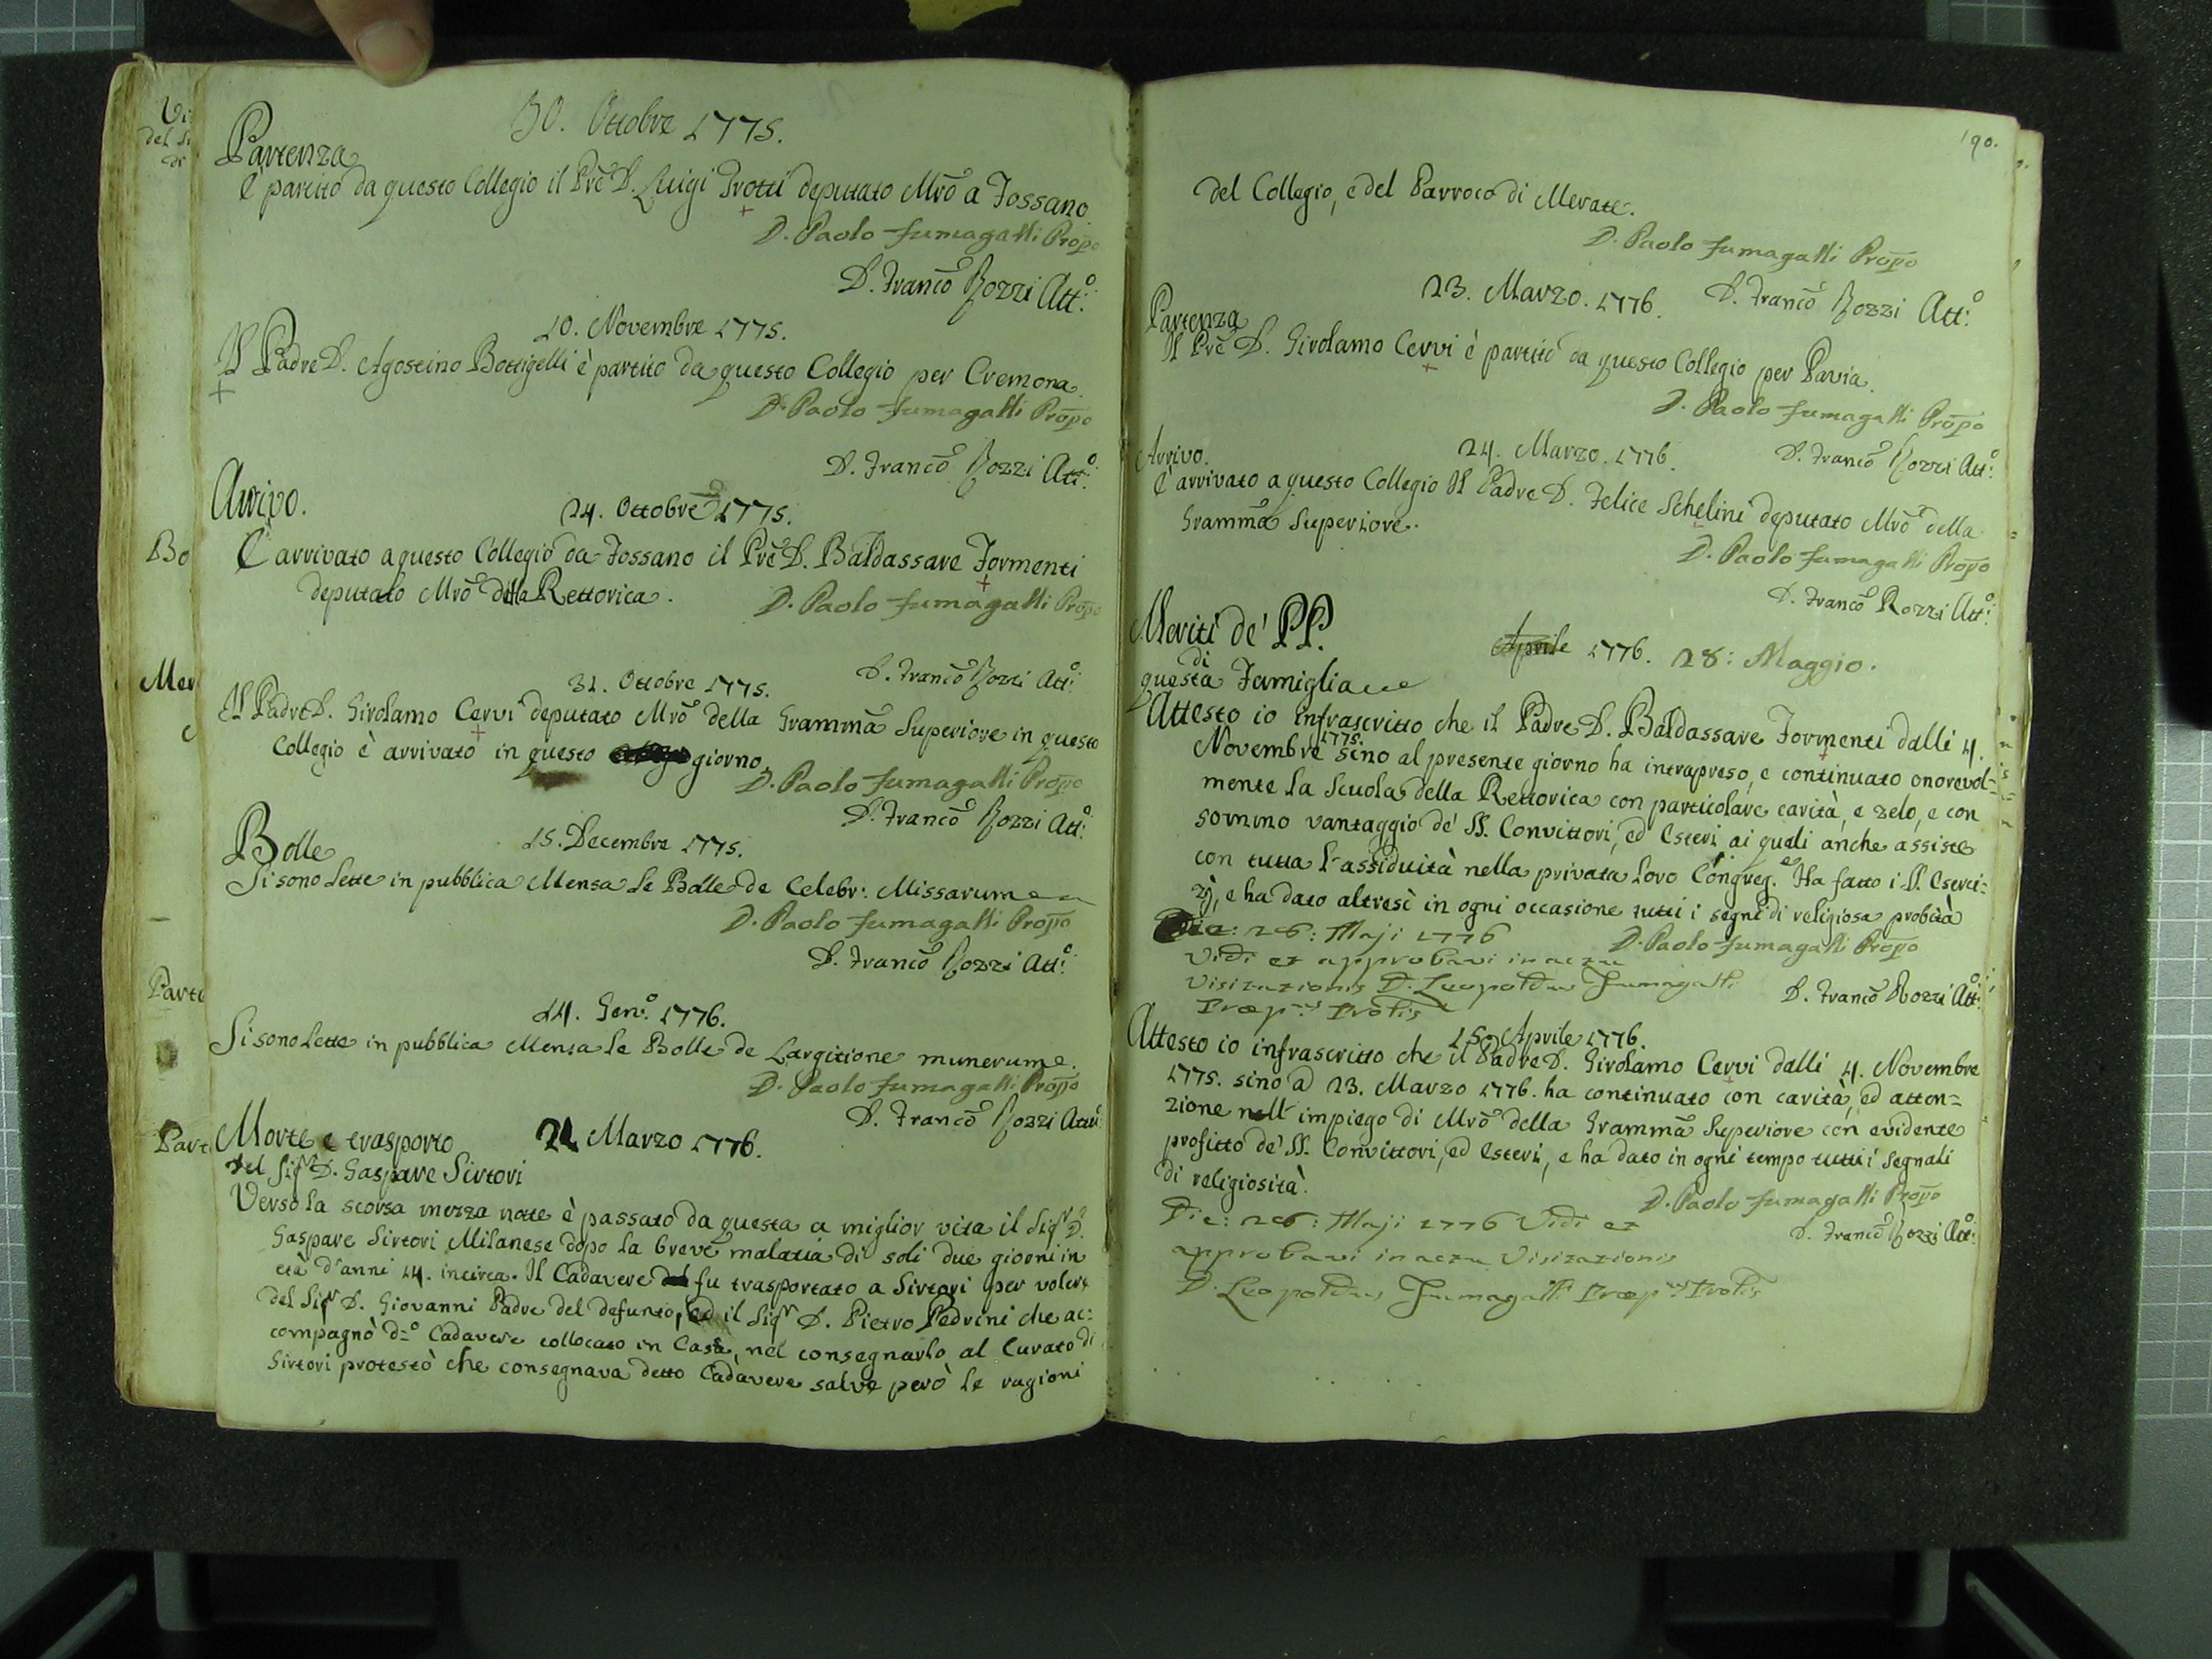 30. Ottobre 1775.
Partenza
È partito da questo Collegio il Prē D. Luigi Trotti deputato Mrō a Fossano
D. Paolo Fumagalli Propo
D. Francō Rozzi Att.º
10. Novembre 1775.
Il Padre D. Agostino Bottigelli è partito da questo Collegio per Cremona
D. Paolo Fumagalli Propo
D. Francō Rozzi Att.º
Arrivo.
24. Ottobre 1775.
È arrivato a questo Collegio da Fossano il Prē D. Baldassare Formenti
deputato Mrō della Rettorica.
D. Paolo Fumagalli Propo
D. Francō Rozzi Att.º
31. Ottobre 1775.
Il Padre D. Girolamo Cervi deputato Mrō della Grammā Superiore in questo
Collegio è arrivato in questo giorno.
D. Paolo Fumagalli Propo
D. Francō Rozzi Att.º
Bolle
15. Decembre 1775.
Si sono lette in pubblica Mensa le Bolle de Celebr: Missarum
D. Paolo Fumagalli Propo
D. Francō Rozzi Att.º
14. Genº. 1776.
Si sono lette in pubblica Mensa le Bolle de Largitione munerum.
D. Paolo Fumagalli Propo
D. Francō Rozzi Attuº
Morte e trasporto
21 Marzo 1776.
del Sigr D. Gaspare Sirtori
Verso la scorsa mezza notte è passato da questa a miglior vita il Sigr D.
Gaspare Sirtori Milanese dopo la breve malatia di soli due giorni in
età d'anni 14. incirca. Il Cadavere fu trasportato a Sirtori per volere
del Sigr D. Giovanni Padre del defunto, ed il Sigr D. Pietro Pedrini che ac:
compagnò d=º Cadavere collocato in Casa, nel consegnarlo al Curato di
Sirtori protestò che consegnava detto Cadavere salve però le ragioni
190.
del Collegio, e del Parroco di Merate.
D. Paolo Fumagalli Propo
D. Francō Rozzi Att:º
23. Marzo. 1776.
Partenza
Il Prē D. Girolamo Cervi è partito da questo Collegio per Pavia.
D. Paolo Fumagalli Propo
D. Francō Rozzi Att:º
24. Marzo. 1776.
Arrivo.
È arrivato a questo Collegio Il Padre D. Felice Schelini deputato Mrō della
Grammā Superiore.
D. Paolo Fumagalli Propo
D. Francō Rozzi Att:º
Meriti de' PP.
di
questa Famiglia
Aprile 1776. 28: Maggio.
Attesto io infrascritto che il Padre D. Baldassare Formenti dalli 4.
Novembre 1775. sino al presente giorno ha intrapreso, e continuato onorevol=
mente la Scuola della Rettorica con particolare carità, e zelo, e con
sommo vantaggio de' SS. Convittori, ed Esteri, ai quali anche assiste
con tutta l'assiduità nella privata loro Congreg.e Ha fatto i S. Eserci=
zj, e ha dato altresì in ogni occasione tutti i segni di religiosa probità
D. Paolo Fumagalli Propo
D. Francō Rozzi Att:º
Die: 28: Maji 1776
Vidi et approbavi in actu
Visitationis D. Leopoldus Fumagalli
Præp.us Prōlis
15. Aprile 1776.
Attesto io infrascritto che il Padre D. Girolamo Cervi dalli 4. Novembre
1775. sino a 23. Marzo 1776. ha continuato con carità, ed atten=
zione nell' impiego di Mrō della Grammā Superiore con evidente
profitto de' SS. Convittori, ed Esteri, e ha dato in ogni tempo tutti i segnali
di religiosità.
D. Paolo Fumagalli Propo
D. Francō Rozzi Att:º
Die: 28: Maji 1776 Vidi et
approbavi in actu Visitationis
D. Leopoldus Fumagalli Præp.us Prōlis